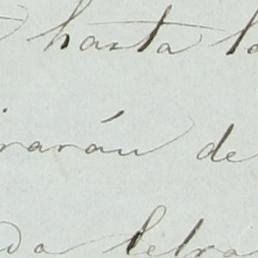 hasta la
rarán de
da letra